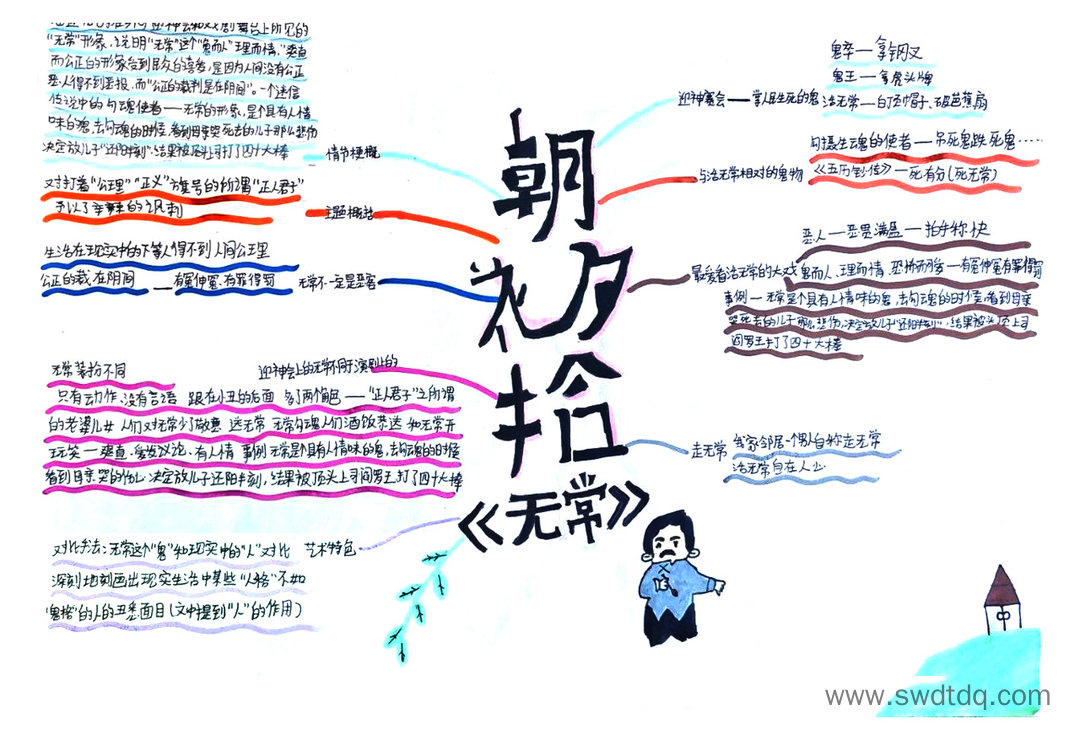 朝花夕拾
《无常》
迎神会和戏剧舞台上所见的
"无常"形象，说明"无常"这个"鬼而人"理而情，"爽直
而公正的形象合到民众的喜爱，是因为人间没有公正
恶人得不到恶报，而"公正的裁判是在阴间"。一个迷信
传说中的勾魂使者——无常的形象，是个具有人情
味的鬼，去勾魂的时候，看到母亲哭死去的儿子那么悲伤
决定放儿子"还阳半刻"，结果被顶头上司打了四十大棒
情节梗概
对打着"公理""正义"旗号的所谓"正人君子"
予以了辛辣的讽刺
主题概括
生活在现实中的下等人得不到人间公理里
公正的裁，在阴间——有冤伸冤，有罪得罚
无常不一定是恶害
无常装扮不同
迎神会上的无常不同于演剧上的
只有动作，没有言语 跟在小丑的后面 多了两个角色——"正人君子"之所谓
的老婆儿女 人们对无常少了敬意 送无常 无常勾魂人们酒饭恭送 和无常开
玩笑——爽直，爱发议论，有人情 事例 无常是个具有人情味的鬼，去勾魂的时候
看到母亲哭的伤心，决定放儿子还阳半刻，结果被顶头上司阎罗王打了四十大棒
对比手法：无常这个"鬼"和现实中的"人"对比
艺术特色
深刻地刻画出现实生活中某些"人格"不如
"鬼格"的人的丑恶面目（文中提到"人"的作用）
鬼卒—拿钢叉
鬼王—拿虎头牌
迎神赛会——掌人民生死的鬼
活无常—白顶帽子、破芭蕉扇
勾摄生魂的使者—吊死鬼跌死鬼……
与活无常相对的鬼物
《玉历钞传》—死有份（死无常）
恶人—恶贯满盈—拍手称快
最爱看活无常的大戏
鬼而人、理而情，恐怖而可爱—有冤伸冤有罪得罚
事例—无常是个具有人情味的鬼，去勾魂的时候，看到母亲
哭死去的儿子那么悲伤，决定放儿子"还阳半刻"，结果被头顶上司
阎罗王打了四十大棒
走无常
我家邻居一个男人自称走无常
活无常自在人心
www.swdtdq.com